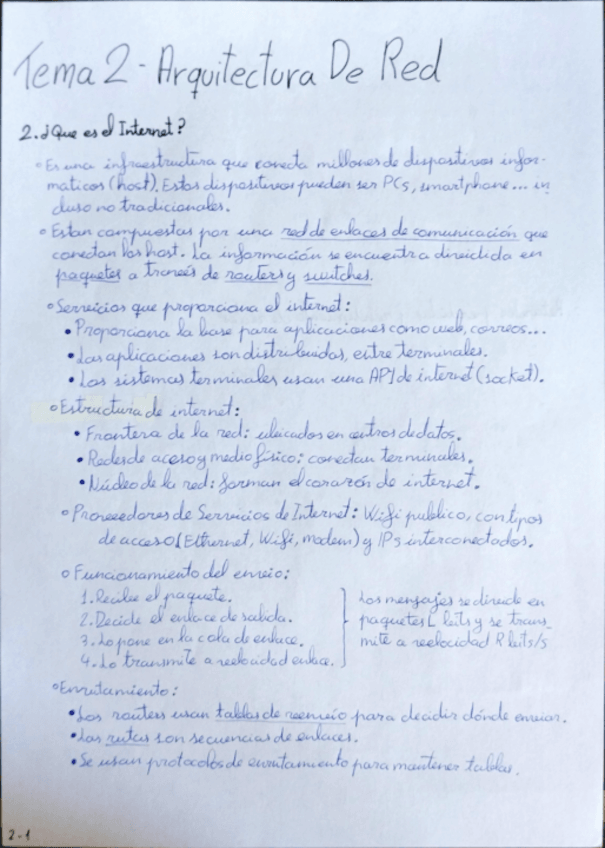 Tema 2 - Arquitectura De Red
2. ¿Que es el Internet?
◦ Es una infraestructura que conecta millones de dispositivos infor-
maticos (host). Estos dispositivos pueden ser PCs, smartphone... in
cluso no tradicionales.
◦ Estan compuestas por una red de enlaces de comunicación que
conectan los host. La información se encuentra dividida en
paquetes a través de routers y switches.
◦ Servicios que proporciona el internet:
• Proporciona la base para aplicaciones como web, correos...
• Las aplicaciones son distribuidas, entre terminales.
• Los sistemas terminales usan una API de internet (socket).
◦ Estructura de internet:
• Frontera de la red: ubicados en centros de datos.
• Redes de acceso y medio físico: conectan terminales.
• Núcleo de la red: forman el corazón de internet.
◦ Proveedores de Servicios de Internet: Wifi publico, con tipos
de acceso (Ethernet, Wifi, modem) y IPs interconectados.
◦ Funcionamiento del envio:
1. Recibe el paquete.
2. Decide el enlace de salida.
3. Lo pone en la cola de enlace.
4. Lo transmite a velocidad enlace.
Los mensajes se divide en
paquetes L bits y se trans_
mite a velocidad R bits/s
◦ Enrutamiento:
• Los routers usan tablas de reenvío para decidir dónde enviar.
• Las rutas son secuencias de enlaces.
• Se usan protocolos de enrutamiento para mantener tablas.
2-1